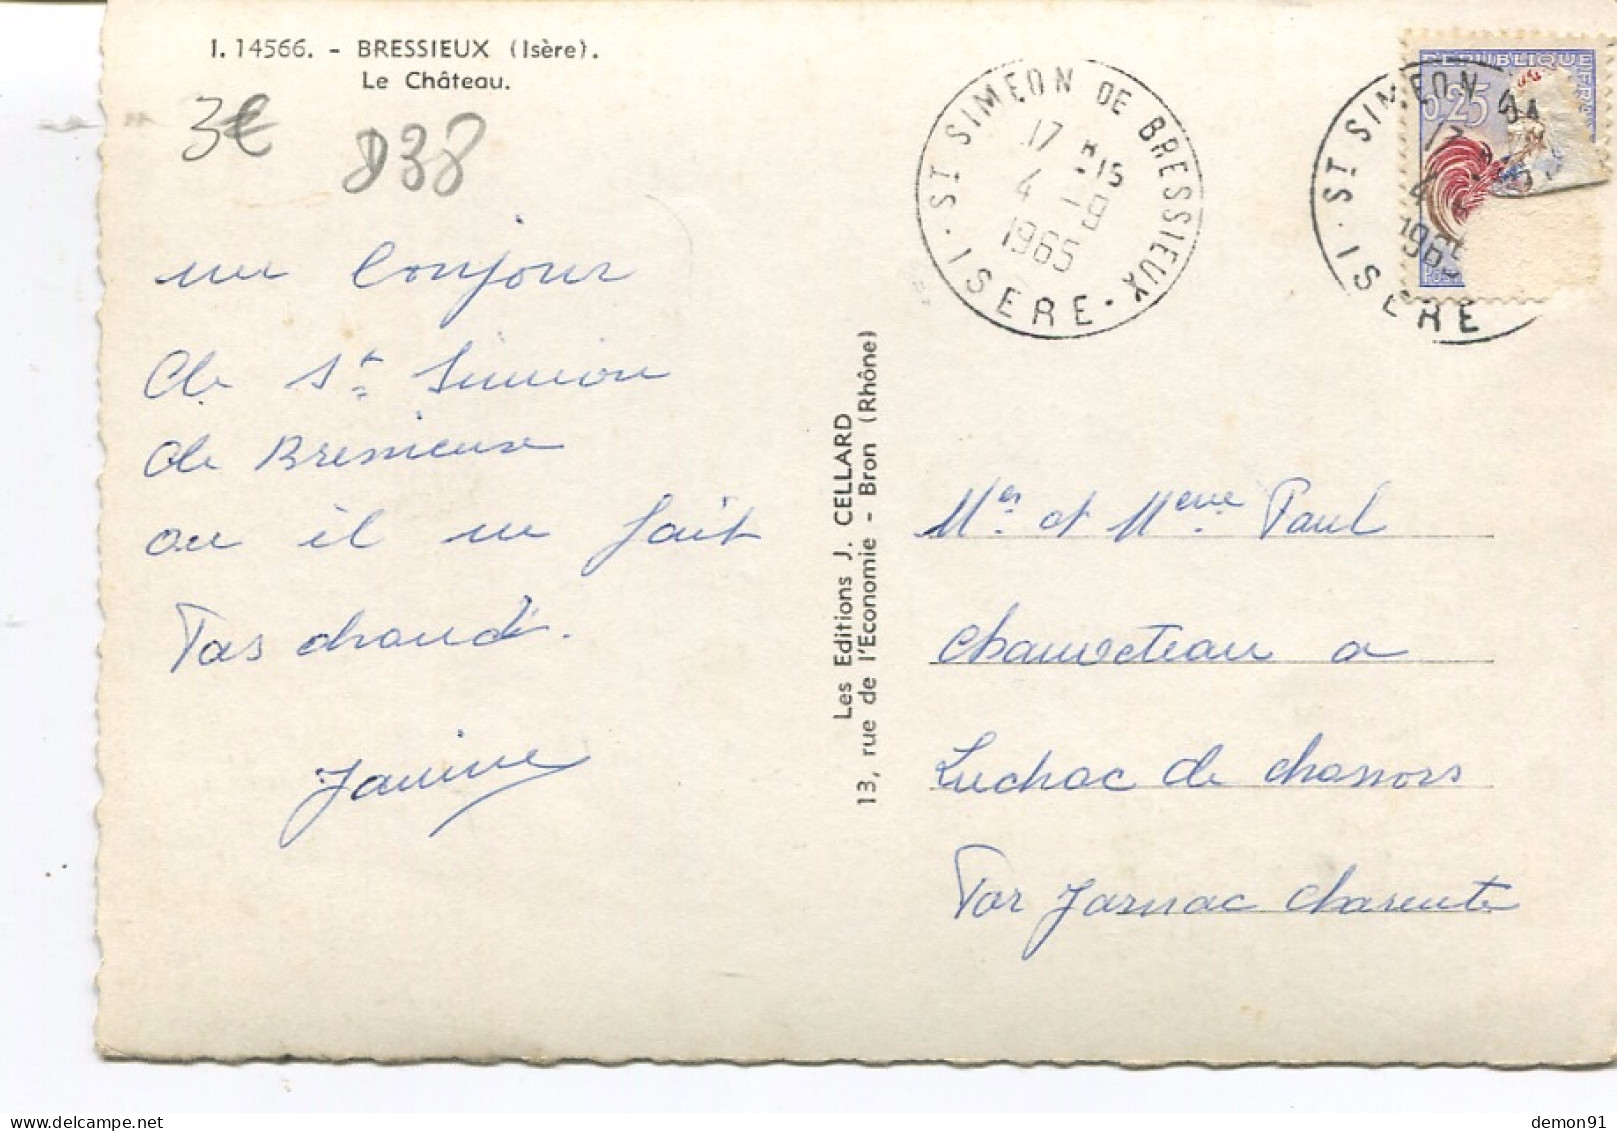 I. 14566. - BRESSIEUX (Isère).
Le Château.
3€
D38
un bonjour
de St Siméon
de Bressieux
ou il ne fait
Pas chaud.
Janine
Les Editions J. CELLARD
13, rue de l'Economie - Bron (Rhône)
ST SIMEON DE BRESSIEUX
17 H 15
4 - 9
1965
· ISERE ·
REPUBLIQUE FRA
0,25
ST SIMEON
17
4
196
ISERE
Mr et Meme Paul
Chauveteau a
Luchac de chassors
Par Jarnac charente
demon91